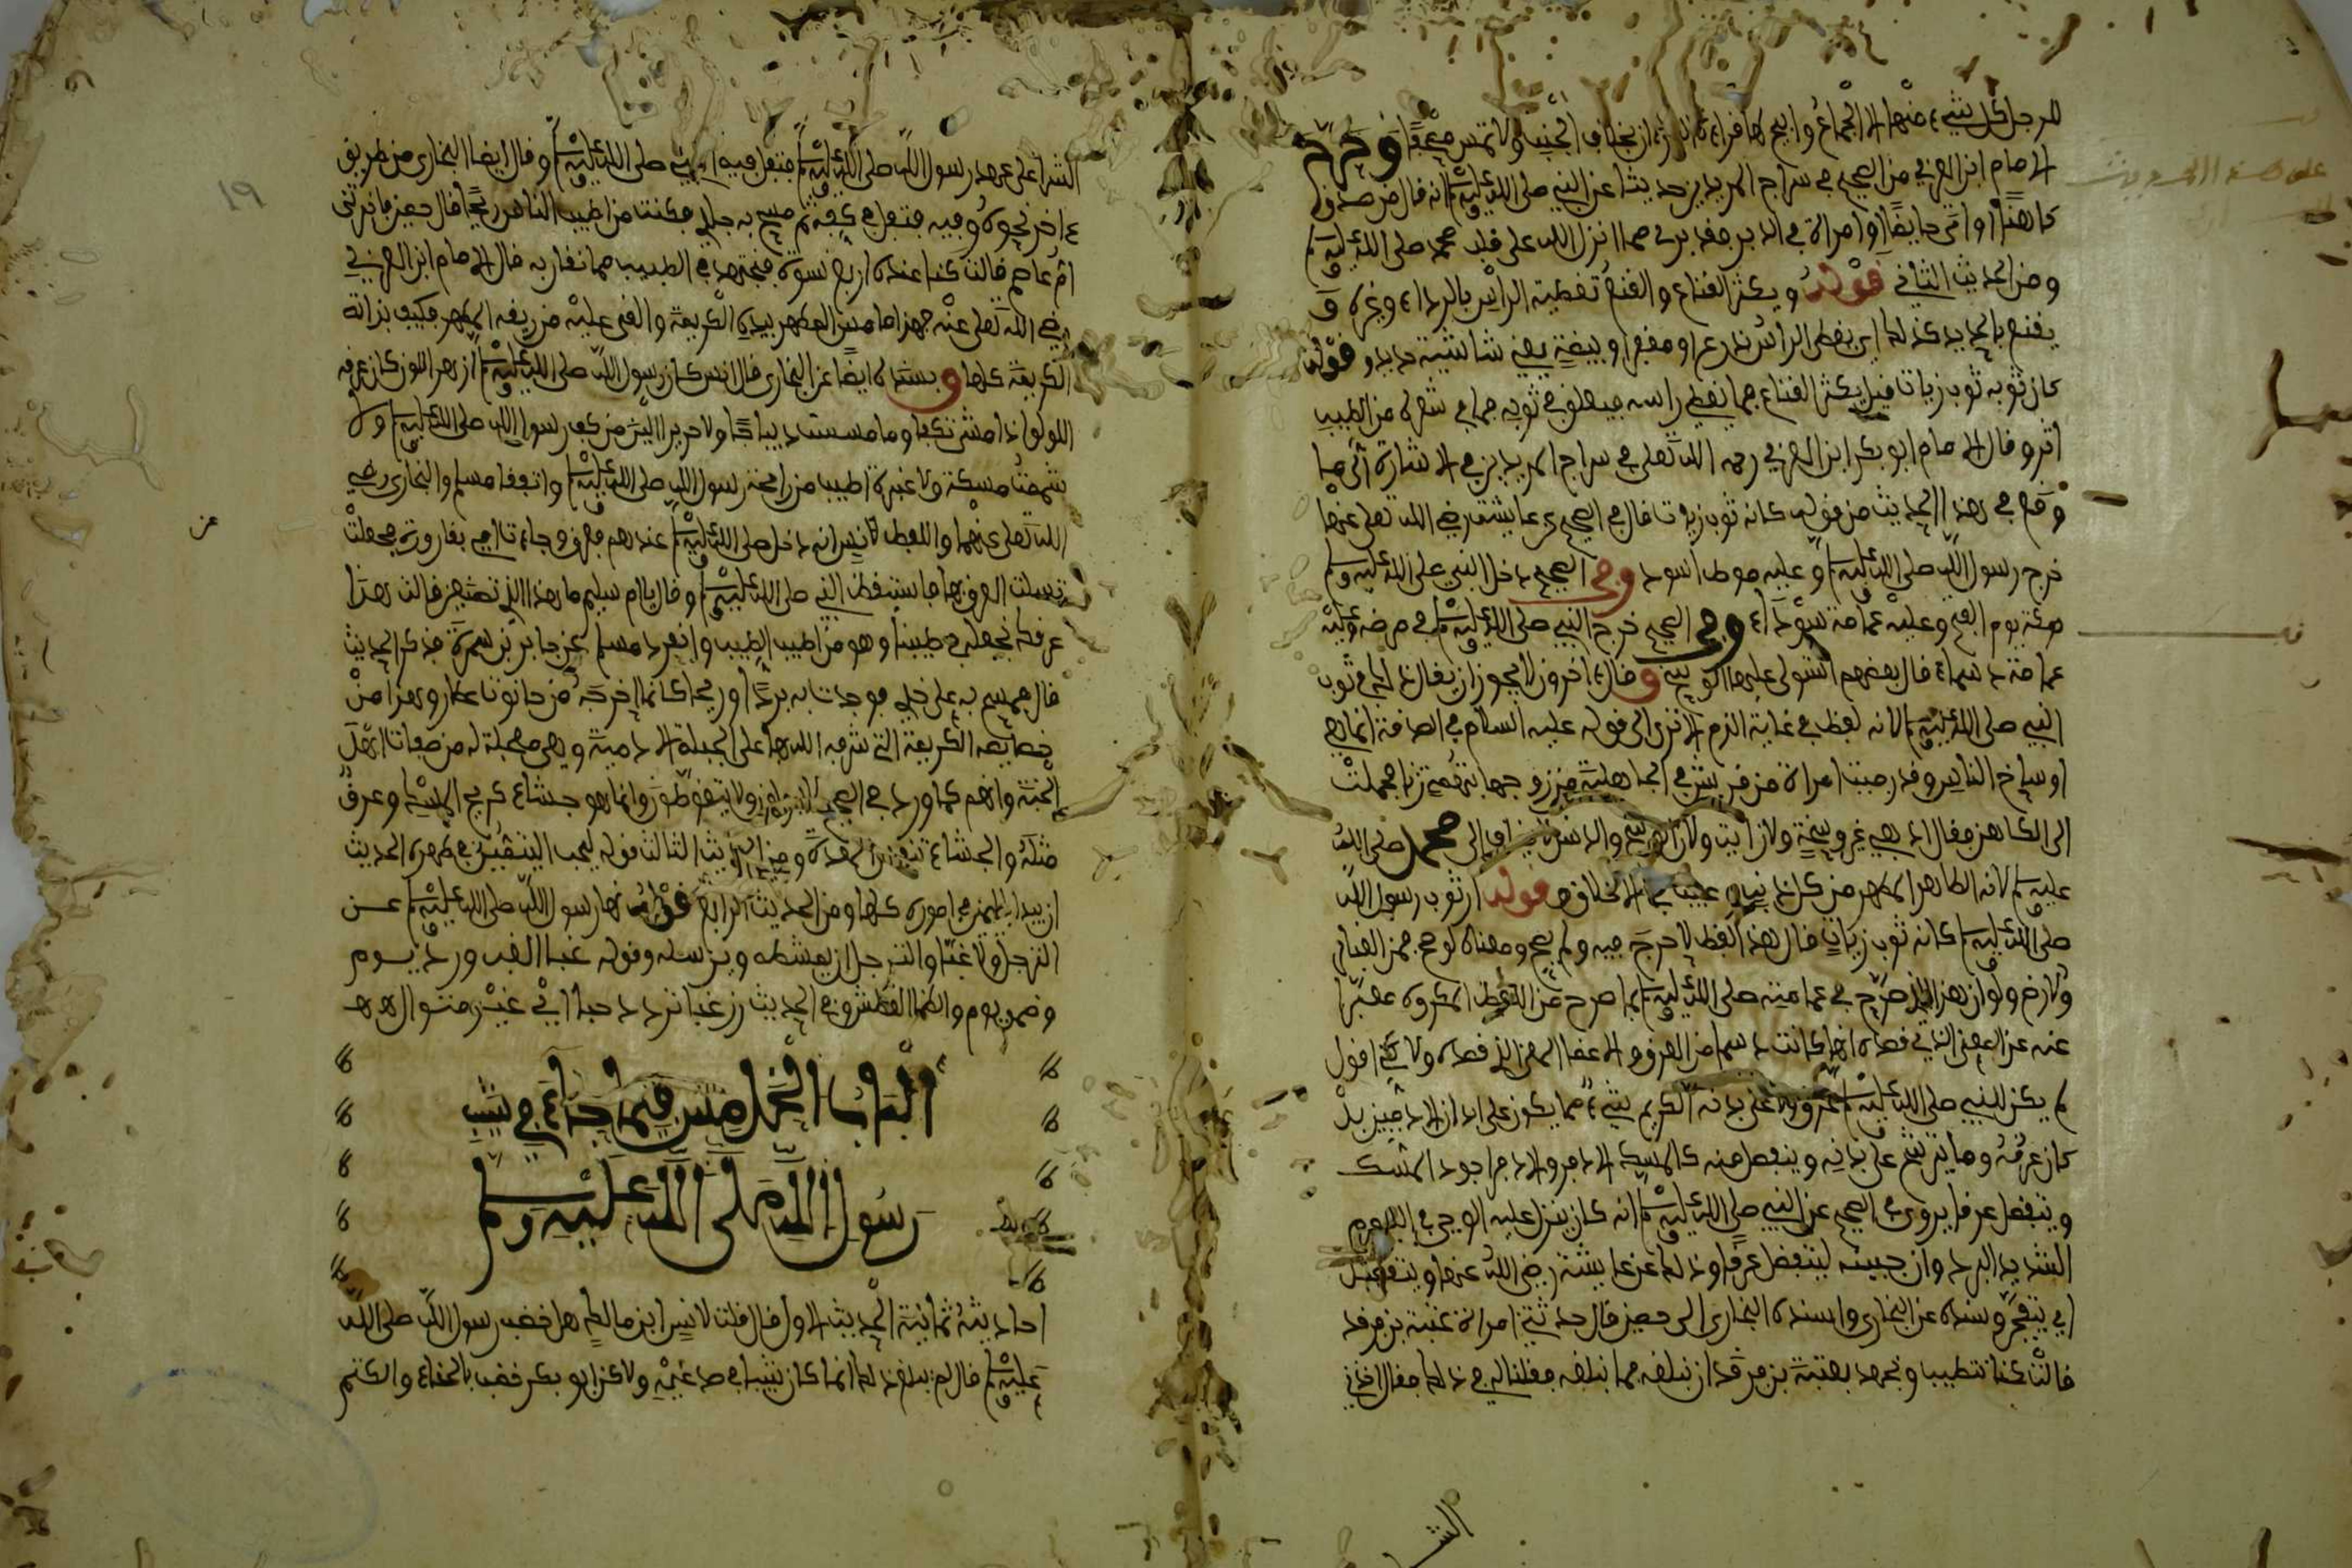 للرجل كل شيء منها إلا الجماع وابيح لها قراءة القرءان بخلاف الجنب ولا تمس مصحفا وخرج
الامام ابن العربي من الصحيح في سراج المريدين حديثا عن النبي صلى الله عليه وسلم انه قال من صدق
كاهنا او اتى حايضا او امراة في الدبر فقد برئ مما انزل الله على قلب محمد صلى الله عليه وسلم
ومن الحديث الثاني قوله ويكثر القناع والقنع تغطية الراس بالرداء وغيره و
يقنع بالحديد كذلك اي يغطى الراس بدرع او مغفر او بيضة يعني شاشية حديد وقوله
كان ثوبه ثوب زيات قيل يكثر القناع مما يغطي راسه فيعلق في ثوبه مما في شعره من الطيب
اثر وقال الامام ابو بكر ابن العربي رحمه الله تعلى في سراج المريدين في الاشارة الى ما
وقع في هذا الحديث من قوله كانه ثوب زيات قال في الصحيح عن عايشة رضي الله تعلى عنها
خرج رسول الله صلى الله عليه وسلم وعليه مرط اسود وفي الصحيح دخل النبي صلى الله عليه وسلم
مكة يوم الفتح وعليه عمامة سوداء وفي الصحيح خرج النبي صلى الله عليه وسلم في مرضه وعليه
عمامة دسماء قال بعضهم استولى عليها الوسخ وقال ءاخرون لا يجوز ان يقال ذلك في ثوب
النبي صلى الله عليه وسلم لانه لفظ في غاية الذم الا ترى الى قوله عليه السلام في الصدقة انما هي
اوساخ الناس وقد رميت امراة من قريش في الجاهلية من زوجها بتهمة زنا فحملت
الى الكاهن فقال اذهبي غير وسخة ولا زانيت ولا الوسخ والدنس لا يضاف الى محمد صلى الله
عليه وسلم لانه الطاهر المطهر من كل دنس عيبا في الاخلاق قوله ان ثوب رسول الله
صلى الله عليه وسلم كانه ثوب زيات قال هذا لفظ لا حرج فيه ولم يصح ومعناه لو صح فمن القناع
ولازم ولو ان هذا الذي صرح في عمامته صلى الله عليه وسلم بما صرح من اللفظ المكروه معبرا
عنه عن المعنى الذي قصده انها كانت دسما من العرق والا عفا المعنى الذي قصده ولاكني اقول
لم يكن للنبي صلى الله عليه وسلم عرق ولا على بدنه الكريم شيء مما يكون على ابدان الادميين بل
كان عرقه وما يترشح على بدنه وينفصل منه كالمسك الاذفر والاذفر اجود المسك
ويتفصد عرقا يروى في الصحيح عن النبي صلى الله عليه وسلم انه كان ينزل عليه الوحي في اليوم
الشديد البرد وان جبينه ليتفصد عرقا وذلك عن عايشة رضي الله عنها ويتفصد
اي يتفجر وسنده عن البخاري واسنده البخاري الى حصين قال حدثتني امراة عتبة بن فرقد
قالت كنا نتطيب ونجهد لعتبة بن فرقد ان نبلغه مما نبلغه فقلنا له في ذلك فقال اخذني
الشـ
الشرا على عهد رسول الله صلى الله عليه وسلم فتفل فيه النبي صلى الله عليه وسلم وقال ايضا البخاري من طريق
ءاخر نحوه وفيه فتفل في كفه ثم مسح به جلدي فكنت من اطيب الناس ريحا قال حصين فاخبرتني
ام عاصم قالت كنا عنده اربع نسوة فنجتهد في الطيب مما نقاربه قال الامام ابن العربي
رضي الله تعلى عنه فهذا ما مس المطهر بيده الكريمة والقى عليه من ريقه المطهر فكيف بذاته
الكريمة كلها وبسنده ايضا عن البخاري قال انس كان رسول الله صلى الله عليه وسلم ازهر اللون كان عرقه
اللولو اذا مشى تكفا وما مسست ديباجا ولا حريرا الين من كف رسول الله صلى الله عليه وسلم ولا
شممت مسكة ولا عنبرة اطيب من رايحة رسول الله صلى الله عليه وسلم واتفقا مسلم والبخاري رضي
الله تعلى عنهما واللفظ لانس انه دخل صلى الله عليه وسلم عندهم فعرق وجاءت امي بقارورة فجعلت
تسلت العرق بها فاستيقظ النبي صلى الله عليه وسلم وقال يا ام سليم ما هذا الذي تصنعين قالت هذا
عرقك نجعله في طيبنا وهو من اطيب الطيب وانفرد مسلم عن جابر بن سمرة فذكر الحديث
قال فمسح به على خدي فوجدت به بردا او ريحا كانما اخرجه من حانوت عطار وهذا من
خصايصه الكريمة التي شرفه الله بها على الجبلة الادمية وهي معجلة له من صفات اهل
الجنة وانهم كما ورد في الصحيح لا يبولون ولا يتغوطون وانما هو جشاء كريح المسك وعرق
مثله والجشاء تنفس المعدة ومن الحديث الثالث قوله ليحب التيمن في طهوره الحديث
ان يبدا باليمنى في اموره كلها ومن الحديث الرابع قوله نها رسول الله صلى الله عليه وسلم عن
الترجل الا غبا والترجل ان يمشطه ويرسله وقوله غبا الغب ورد يوم
وضمو يوم والظما العطش وفي الحديث زر غبا تزدد حبا اي في غير متوال هـ هـ
الباب الخامس فيما جاء في شيب
رسول الله صلى الله عليه وسلم
احاديثه ثمانية الحديث الاول قال قلت لانس ابن مالك هل خضب رسول الله صلى الله
عليه وسلم قال لم يبلغ ذلك انما كان شيبا في صدغيه ولاكن ابو بكر خضب بالحناء والكتم
١٩